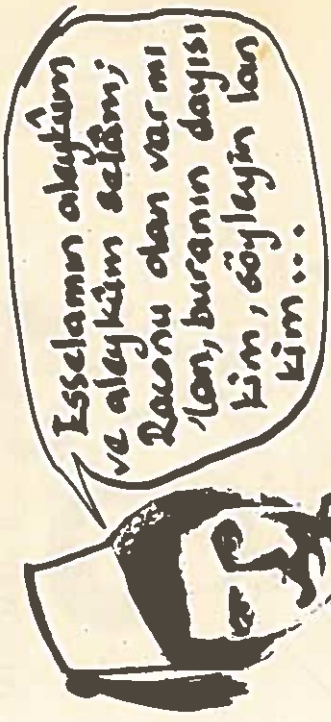 Esselamın aleykûm
ve aleykûm selâm;
Raconu olan var mı
lan, buranın dayısı
kim, söyleyin lan
kim...